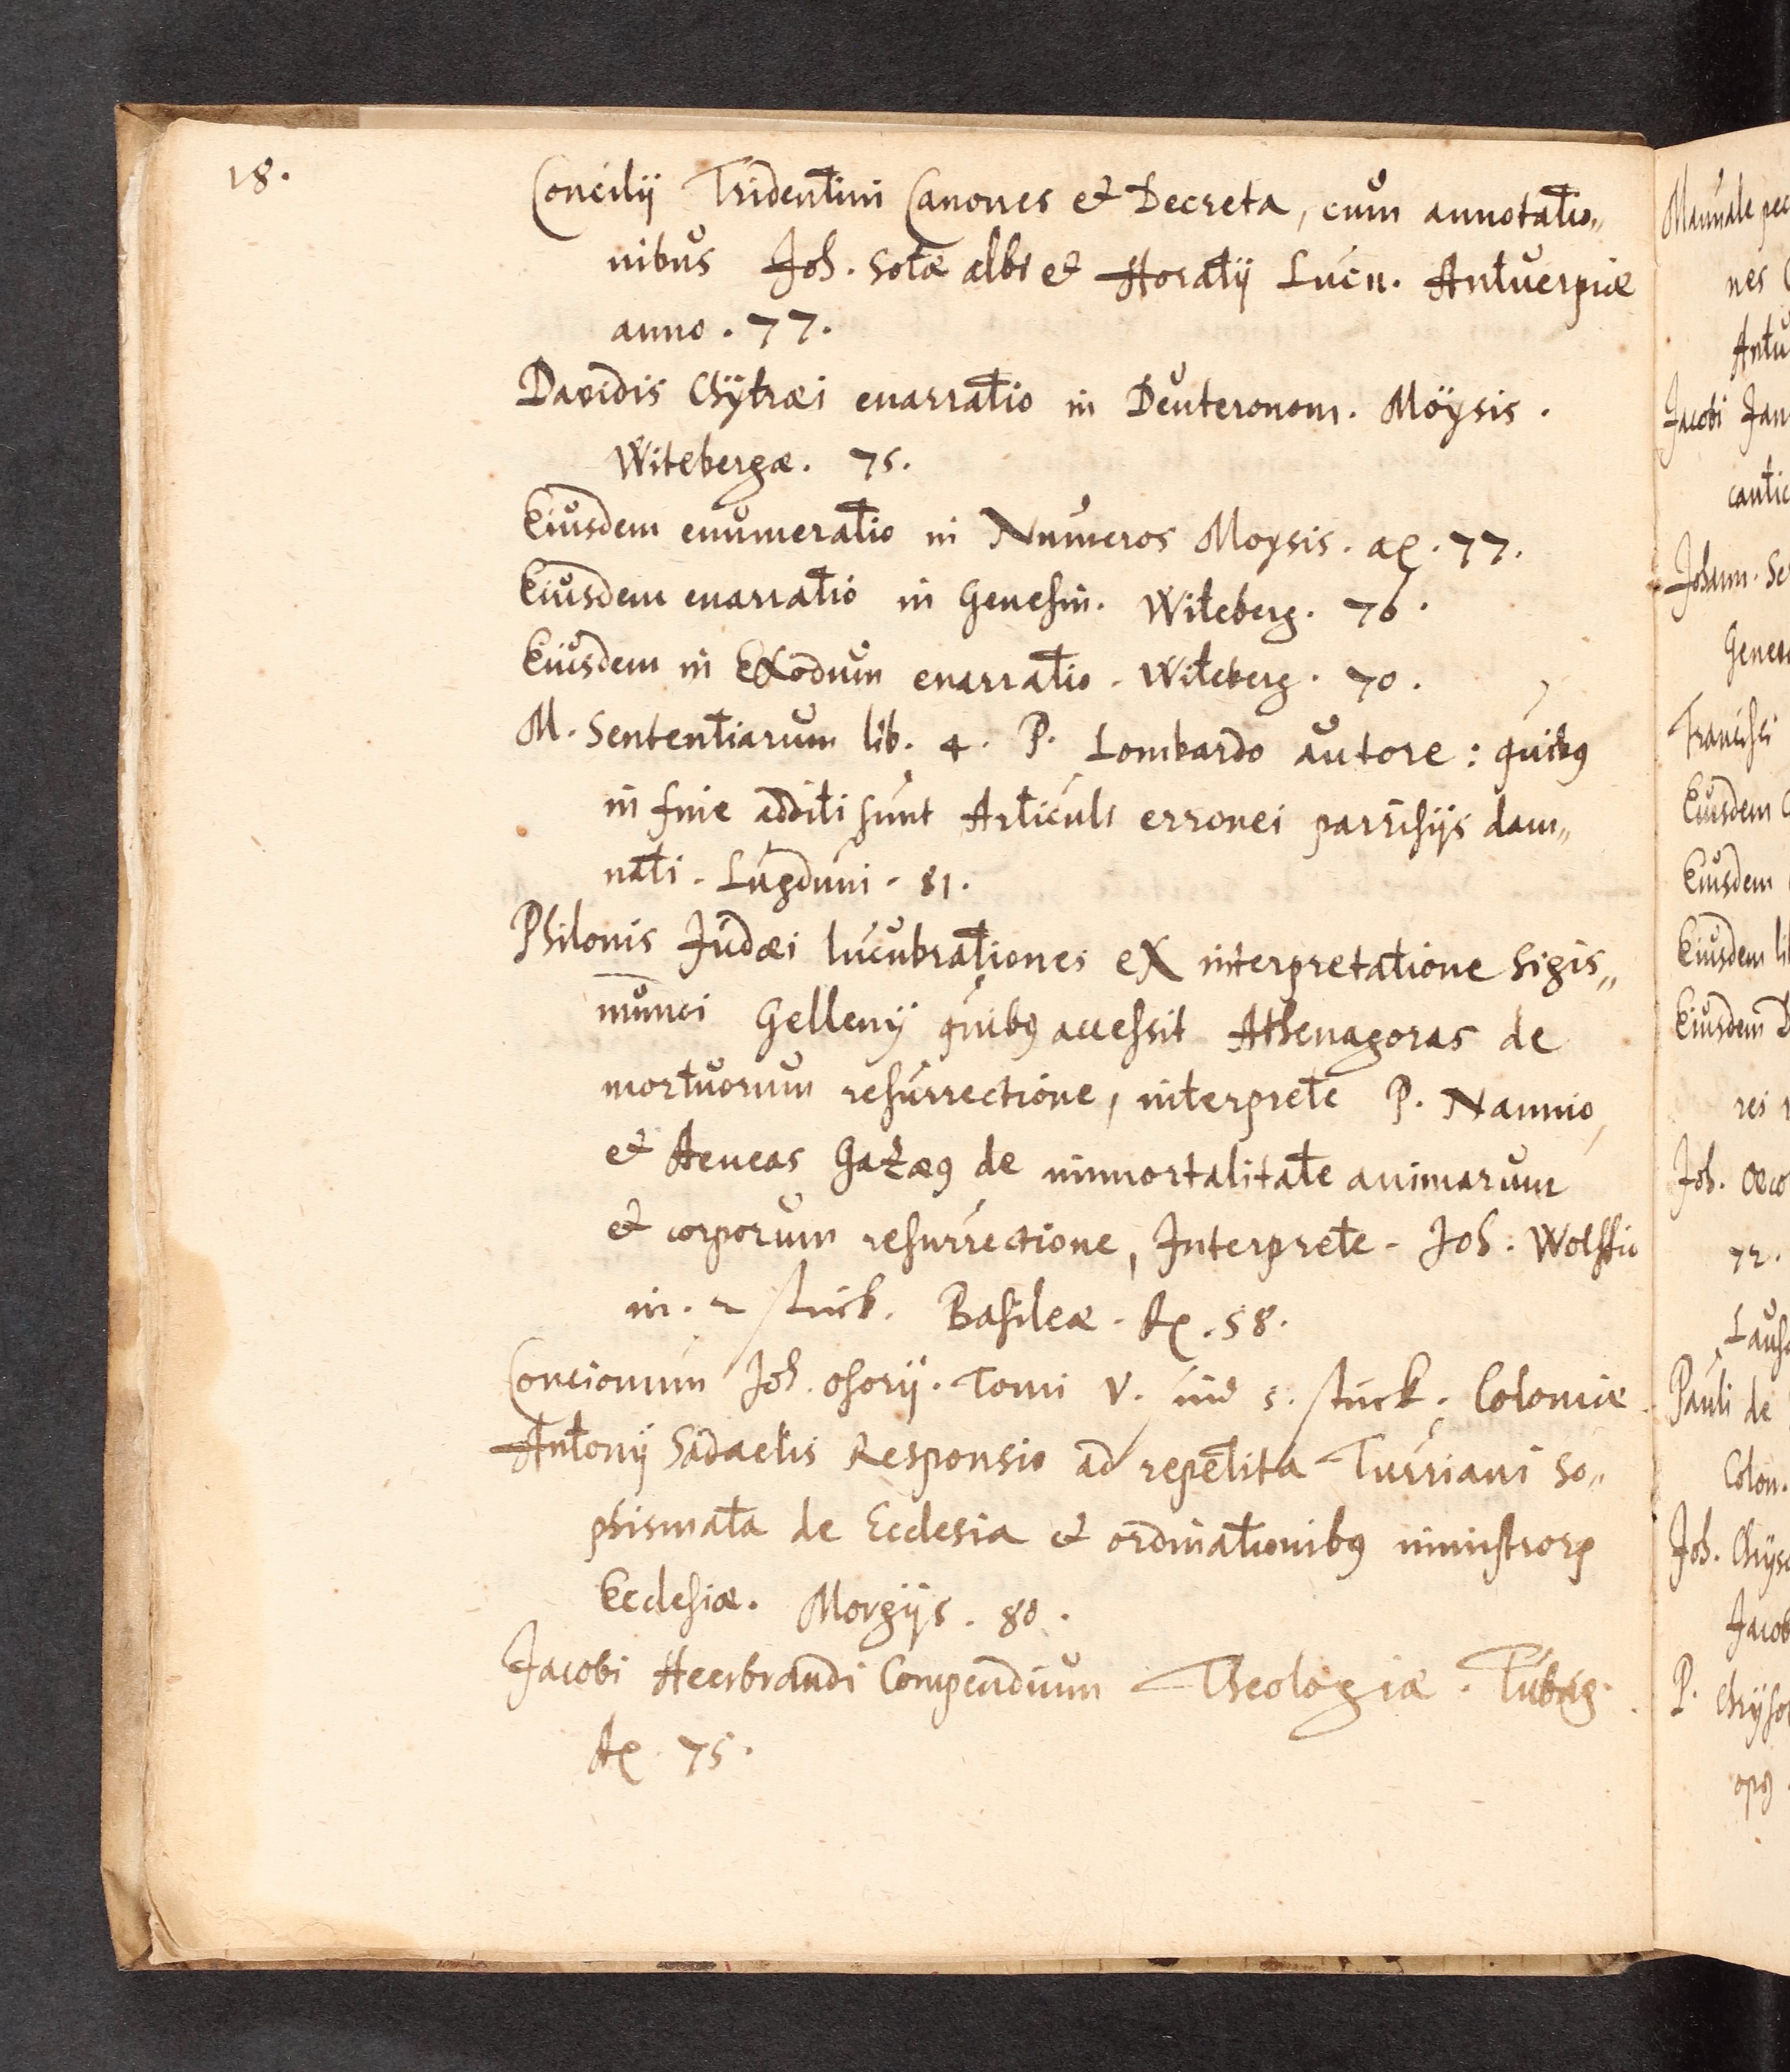 18.
Concilij Tridentini Canones et Decreta, cum annotatio„
nibus Joh. Sotæ albi et Horatij Lucii. Antuerpiæ
anno. 77.
Davidis Chÿtræi enarratio in Deuteronom. Moÿsis.
Witebergæ. 75.
Eiusdem enumeratio in Numeros Moysis. aõ. 77.
Eiusdem enarratio in Genesin. Witeberg. 76.
Eiusdem in EXodum enarratio. Witeberg. 70.
M. Sententiarum lib. 4. P. Lombardo autore: quibus
in fine additi sunt Articuli erronei parrisijs dam„
nati. Lugduni. 81.
Philonis Judæi lucubrationes eX interpretatione Sigis„
munci Gellenij quibus accessit Athenagoras de
mortuorum resurrectione, interprete P. Nannio,
et Aeneas Gazæus de immortalitate animarum
et corporum resurrectione, Interprete. Joh. Wolffio
in. 2 stuck. Basileæ. Aõ. 58.
Concionum Joh. osorij. Tomi V. ind 5. stuck. Coloniæ.
Antonij Sadaelis Responsio ad repetita Turriani So„
phismata de Ecclesia et ordinationibus ministrorum
Ecclesiæ. Morgijs. 80.
Jacobi Heerbrandi Compendium Theologiæ. Tubing.
Aõ. 75.
Manuale pec
nes
Antu
Jacobi Jan
cantic
Johann. Se
Genera
Francisci
Eiusdem
Eiusdem
Eiusdem li
Eiusdem D
res
Joh. Oeco
72.
Lausa
Pauli de
Colon.
Joh. Chÿso
Jacob
P. Chrÿso
opus